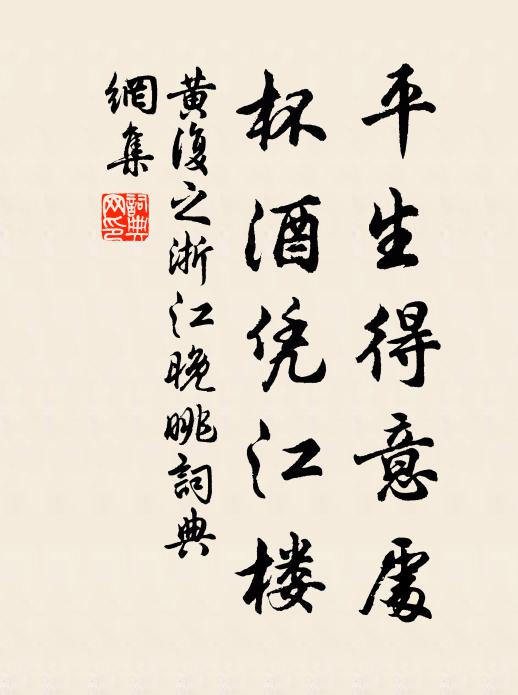 平生得意處
杯酒凭江楼
黄復之浙江晚眺詞典
網集
詞典网印